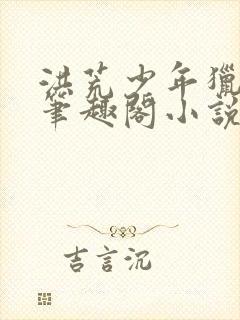 洪荒少年獵
筆趣閣小說
吉言沉